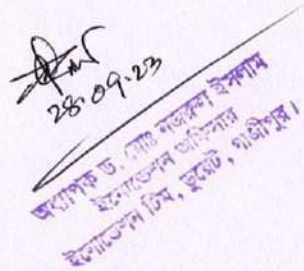 28.09.23
অধ্যাপক ড. মোঃ নজরুল ইসলাম
ইনোভেশন অফিসার
ইনোভেশন টিম, ডুয়েট, গাজীপুর।